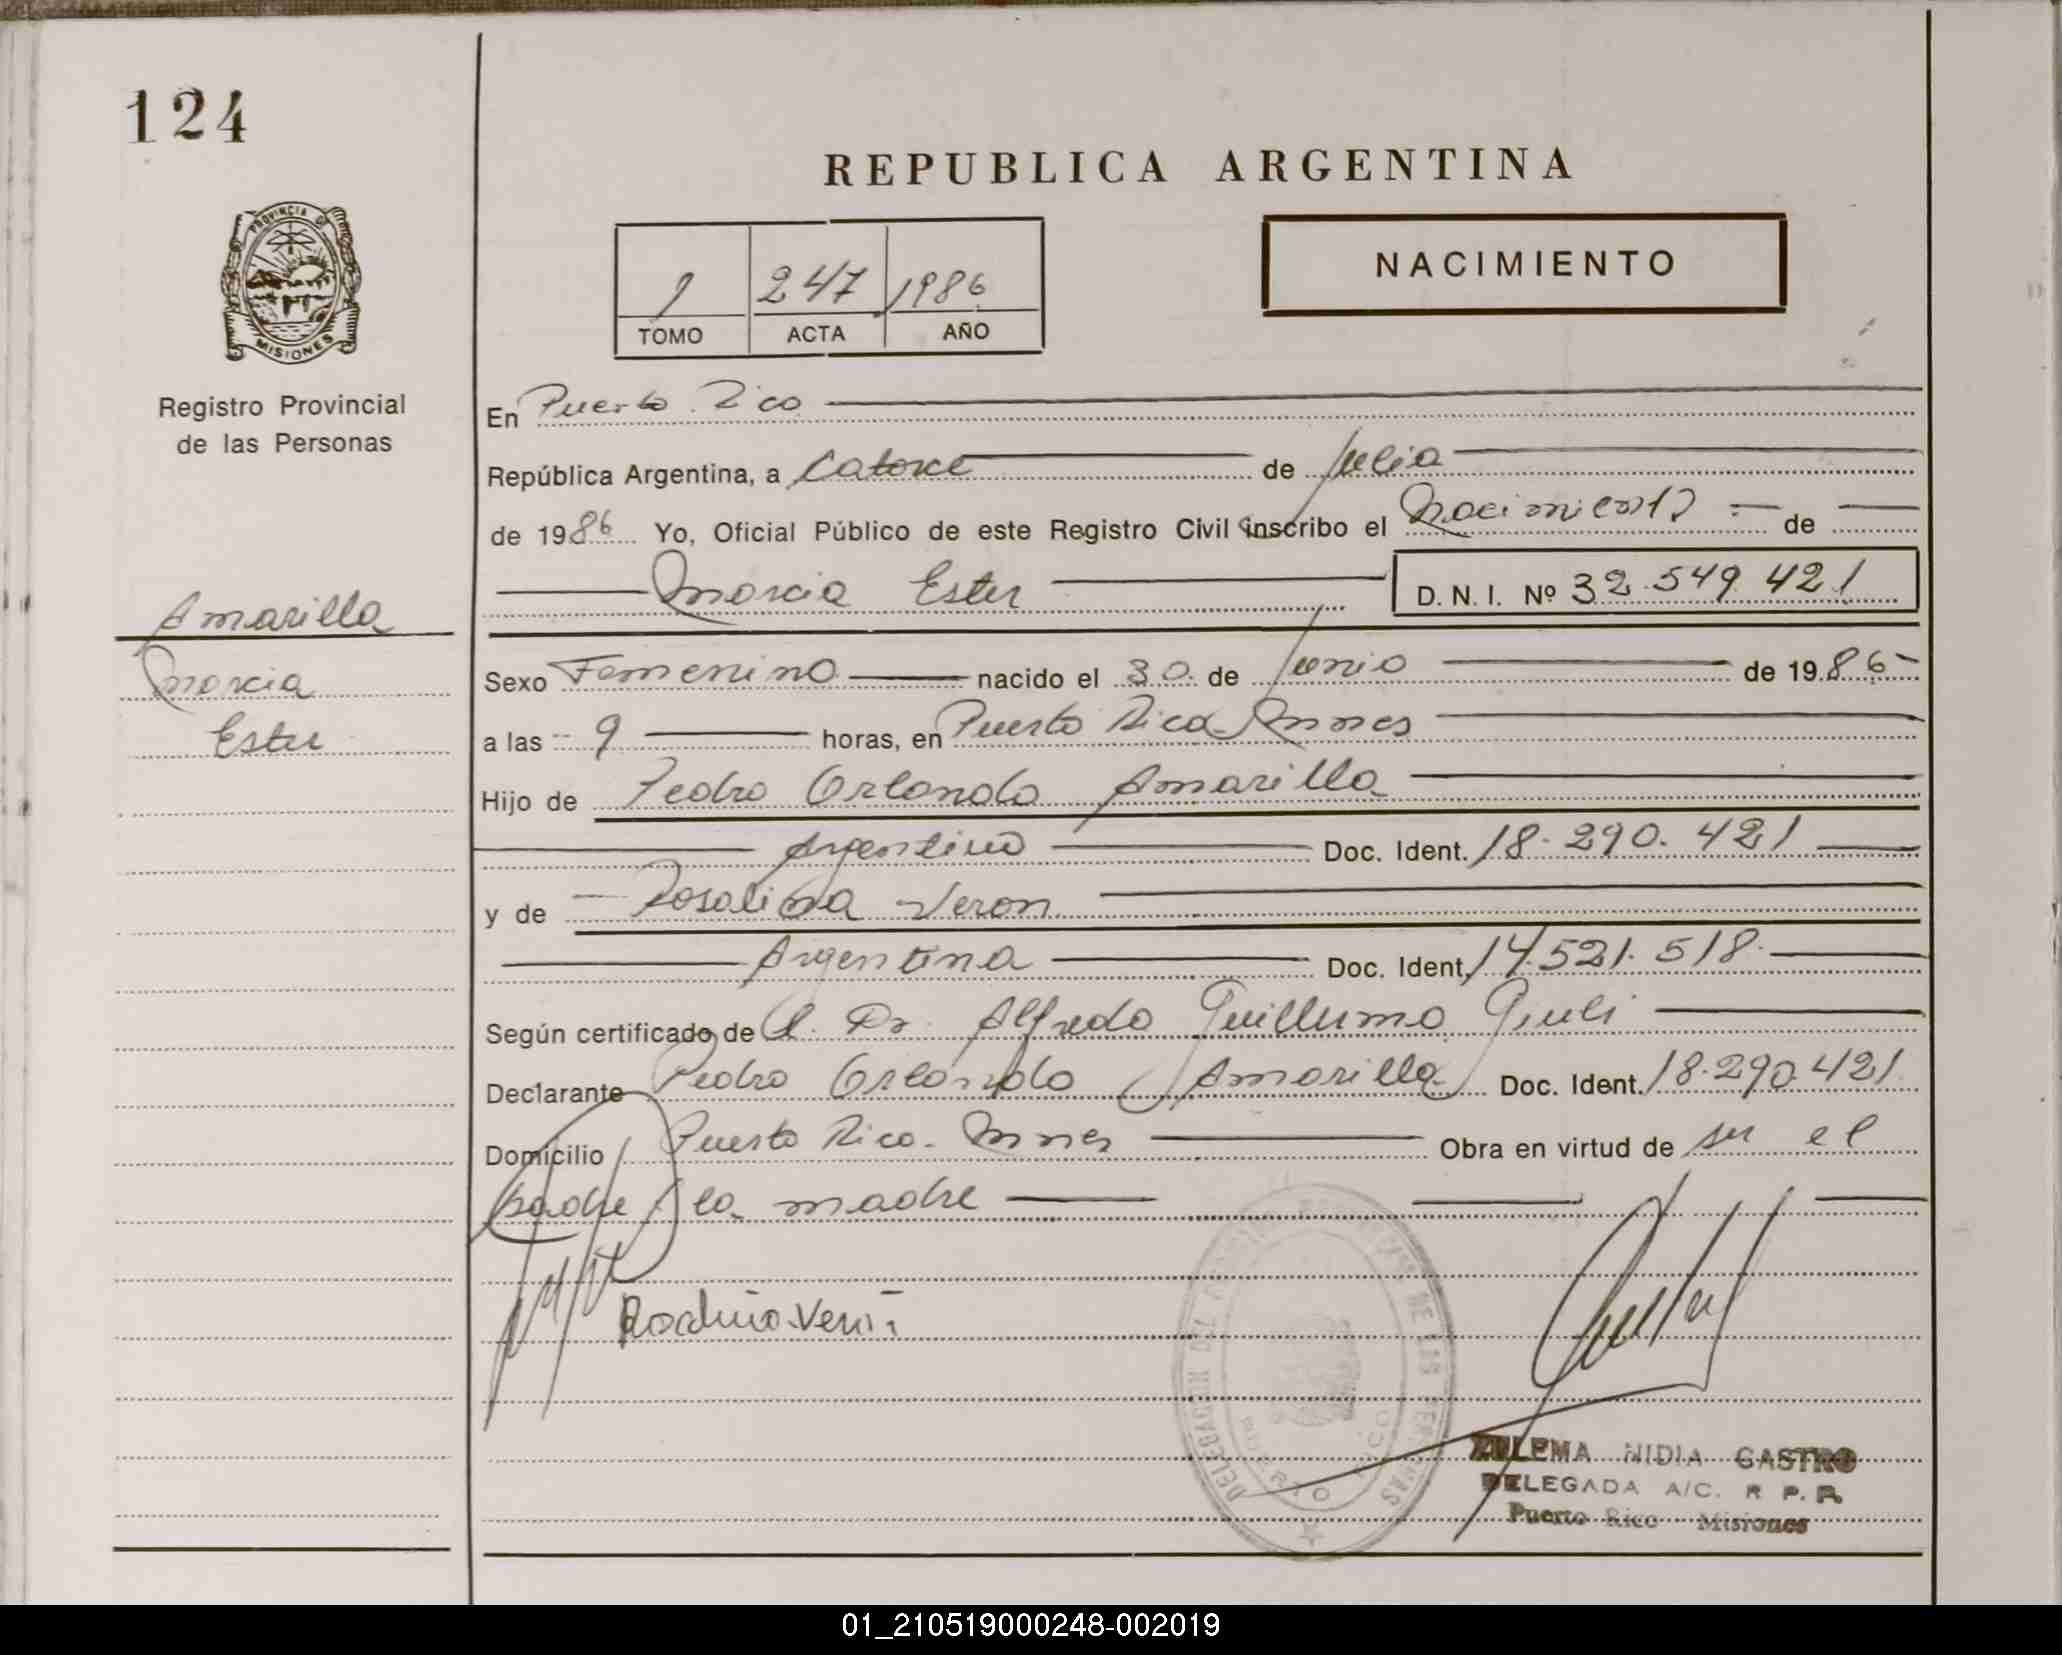 124
REPUBLICA ARGENTINA
NACIMIENTO
1 247 1986
TOMO ACTA AÑO
PROVINCIA DE
MISIONES
Registro Provincial
de las Personas
En Puerto Rico
República Argentina, a Catorce de Julio
de 1986 Yo, Oficial Público de este Registro Civil inscribo el Nacimiento de
Marcia Ester D. N. I. Nº 32.549.421
Amarilla
Marcia
Ester
Sexo Femenino nacido el 30 de Junio de 1986
a las 9 horas, en Puerto Rico Mnes
Hijo de Pedro Orlando Amarilla
Argentino Doc. Ident. 18.290.421
y de Rosalina Veron
Argentina Doc. Ident. 14.521.518
Según certificado de Dr. Alfredo Guillermo Giuli
Declarante Pedro Orlando Amarilla Doc. Ident. 18.290.421
Domicilio Puerto Rico. Mnes Obra en virtud de ser el
padre y la madre
DELEGACION DEL REGISTRO DE LAS PERSONAS
PUERTO RICO
ZULEMA NIDIA CASTRO
DELEGADA A/C. R P. P.
Puerto Rico Misiones
01_210519000248-002019